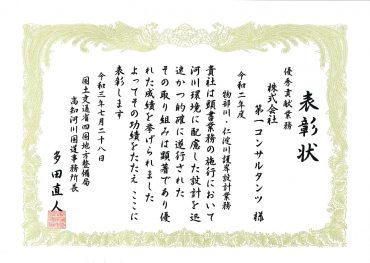 表彰状
優秀貢献業務
株式会社
第一コンサルタンツ 様
令和二年度
物部川・仁淀川護岸設計業務
貴社は頭書業務の施行において
河川環境に配慮した設計を迅
速かつ的確に遂行された
その取り組みは顕著であり優
れた成績を挙げられました
よってその功績をたたえ ここに
表彰します
令和三年七月二十八日
国土交通省四国地方整備局
高知河川国道事務所長
多田直人